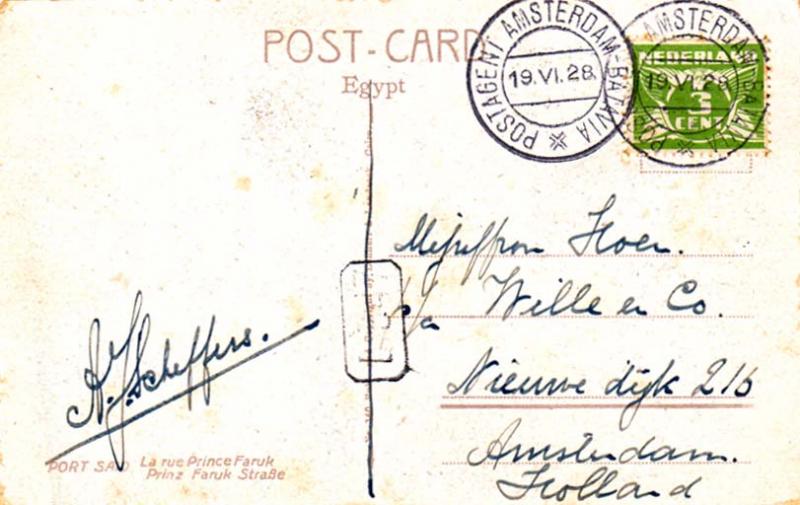 POST-CARD
Egypt
POSTAGENT AMSTERDAM-BATAVIA
19.VI.28.
AMSTERDAM-BATAVIA
19.VI.28
NEDERLAND
3
CENT
Mejuffrou Hoen.
p/a Wille en Co.
Nieuwe dijk 216
Amsterdam.
Holland
A.J. Scheffers.
PORT SAID La rue Prince Faruk
Prinz Faruk Straße